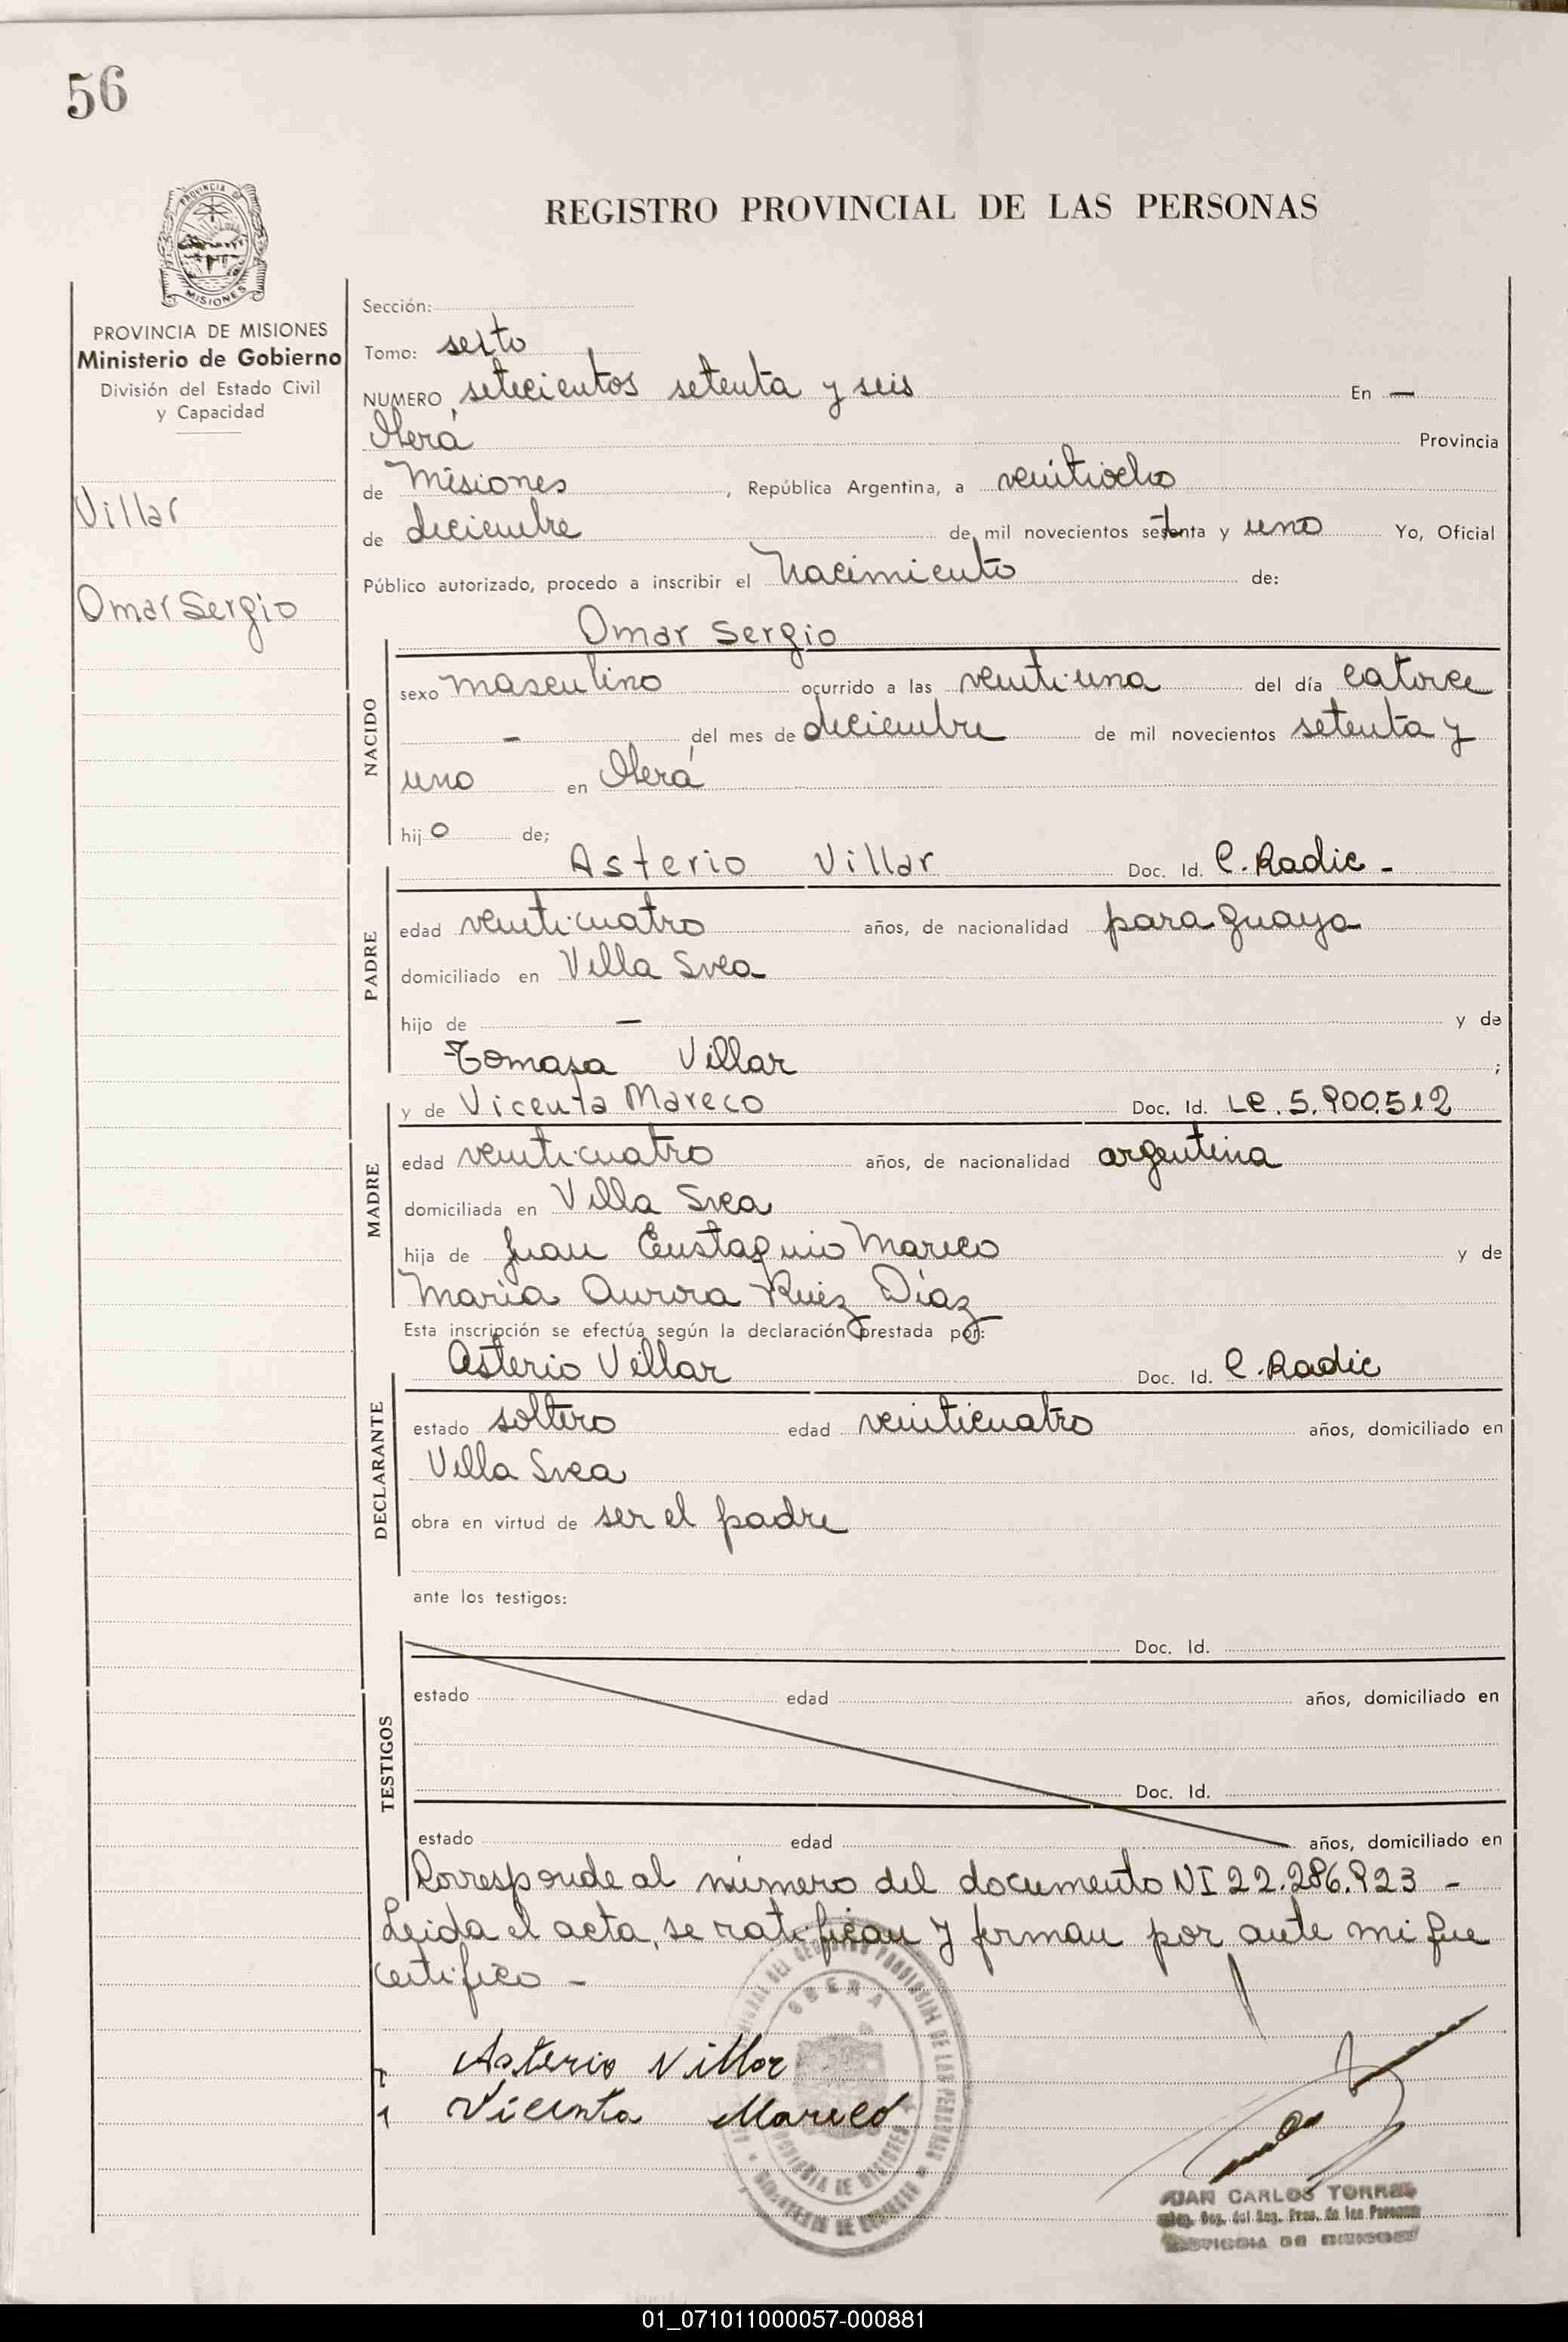 56
PROVINCIA DE
MISIONES
REGISTRO PROVINCIAL DE LAS PERSONAS
PROVINCIA DE MISIONES
Ministerio de Gobierno
División del Estado Civil
y Capacidad
Villar
Omar Sergio
Sección:
Tomo: sexto
NUMERO setecientos setenta y seis En —
Oberá Provincia
de Misiones, República Argentina, a veintiocho
de deciembre de mil novecientos setenta y uno Yo, Oficial
Público autorizado, procedo a inscribir el Nacimiento de:
Omar Sergio
NACIDO
sexo masculino ocurrido a las veintiuna del día catorce
- del mes de deciembre de mil novecientos setenta y
uno en Oberá
hijo de;
Asterio Villar Doc. Id. C. Radic -
PADRE
edad veinticuatro años, de nacionalidad paraguaya
domiciliado en Villa Svea
hijo de — y de
Tomasa Villar ;
y de Vicenta Mareco Doc. Id. LC. 5.900.512
MADRE
edad veinticuatro años, de nacionalidad argentina
domiciliada en Villa Svea
hija de Juan Eustaquio Mareco y de
Maria Aurora Ruiz Díaz
Esta inscripción se efectúa según la declaración prestada por:
Asterio Villar Doc. Id. C. Radic
DECLARANTE
estado soltero edad veinticuatro años, domiciliado en
Villa Svea
obra en virtud de ser el padre
ante los testigos:
TESTIGOS
Doc. Id.
estado edad años, domiciliado en
Doc. Id.
estado edad años, domiciliado en
Corresponde al número del documento NI 22.286.923 -
Leida el acta, se ratifican y firman por ante mi que
certifico -
OBERA
Asterio Villar
Vicenta Mareco
JUAN CARLOS TORRES
01_071011000057-000881